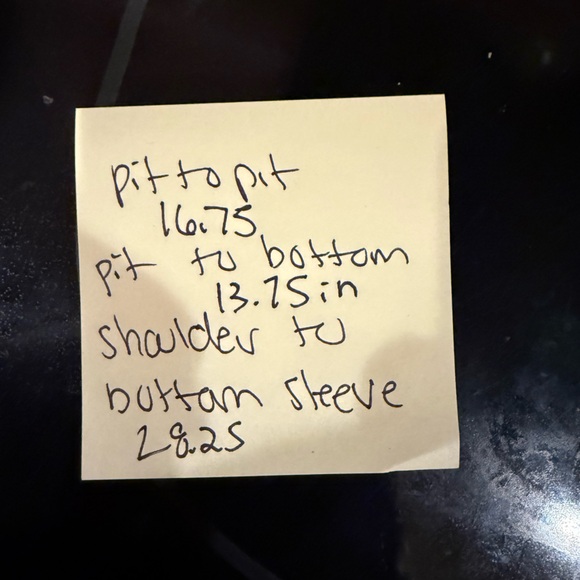 pit to pit
16.75
pit to bottom
13.75 in
shoulder to
bottom sleeve
28.25